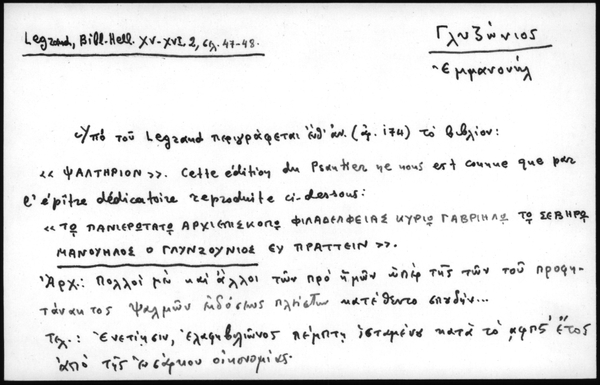 Legrand, Bibl. Hell. XV-XVI. 2, σελ. 47-48.
Γλυζώνιος
Ἐμμανουήλ
Ὑπό τοῦ Legrand περιγράφεται (ἀρ. 174) τό βιβλίον:
«ΨΑΛΤΗΡΙΟΝ». Cette édition du Psautier ne nous est connue que par
l'épître dédicatoire reproduite ci-dessous:
«ΤΩ ΠΑΝΙΕΡΩΤΑΤΩ ΑΡΧΙΕΠΙΣΚΟΠΩ ΦΙΛΑΔΕΛΦΕΙΑΣ ΚΥΡΙΩ ΓΑΒΡΙΗΛΩ ΤΩ ΣΕΒΗΡΩ
ΜΑΝΟΥΗΛΟΣ Ο ΓΛΥΝΖΟΥΝΙΟΣ ΕΥ ΠΡΑΤΤΕΙΝ».
Ἀρχ.: Πολλοί μέν καί ἄλλοι τῶν πρό ἡμῶν ὑπέρ τῆς τῶν τοῦ προφη-
τάνακτος ψαλμῶν ἐκδόσεως πλείστην κατέθεντο σπουδήν...
Τελ.: Ἐνετίησιν, ἐλαφηβολιῶνος πέμπτῃ ἱσταμένου κατά τό ,αφπς ἔτος
ἀπό τῆς ἐνσάρκου οἰκονομίας.